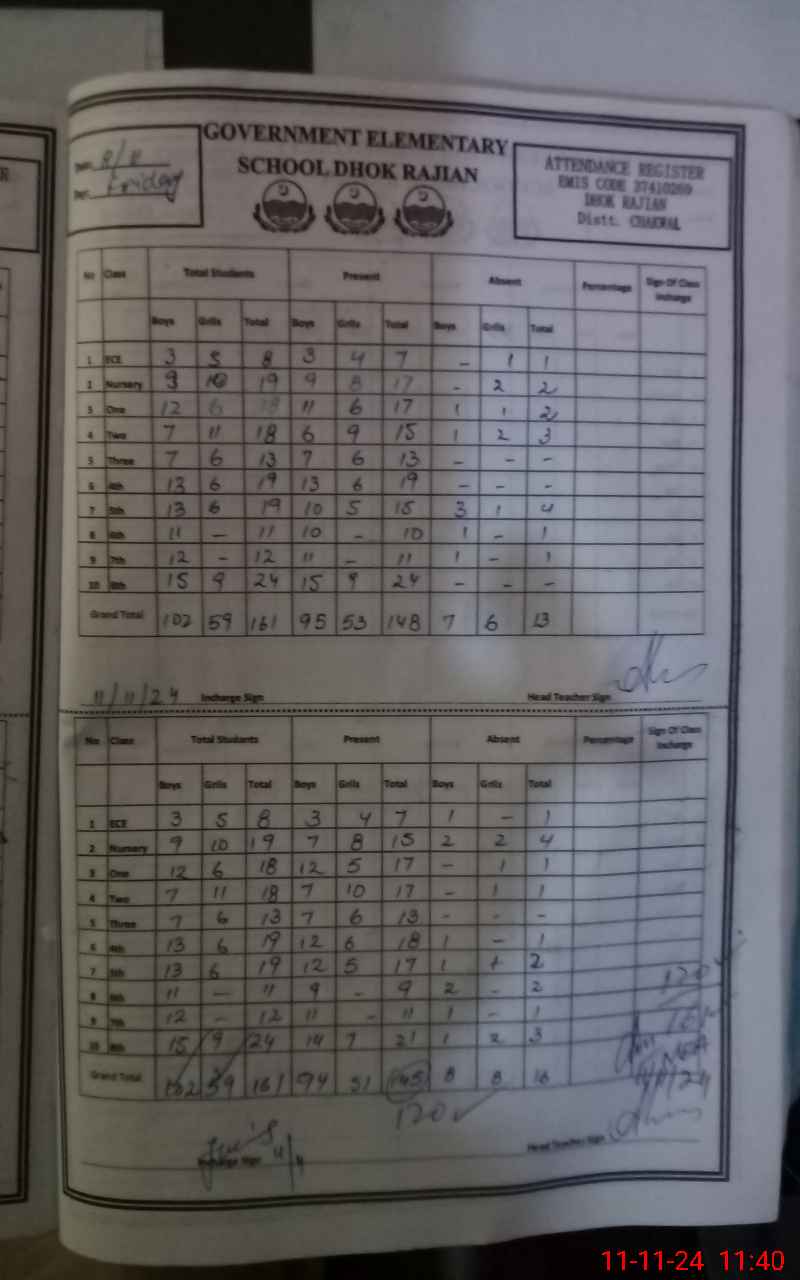 GOVERNMENT ELEMENTARY
SCHOOL DHOK RAJIAN
8/11
Friday
ATTENDANCE REGISTER
EMIS CODE 37410269
DHOK RAJIAN
Distt. CHAKWAL
No Class Total Students Present Absent Percentage Sign Of Class Incharge
Boys Grils Total Boys Grils Total Boys Grils Total
1 ECE 3 5 8 3 4 7 - 1 1
2 Nursery 9 10 19 9 8 17 - 2 2
3 One 12 6 18 11 6 17 1 1 2
4 Two 7 11 18 6 9 15 1 2 3
5 Three 7 6 13 7 6 13 - - -
6 4th 13 6 19 13 6 19 - - -
7 5th 13 6 19 10 5 15 3 1 4
8 6th 11 - 11 10 - 10 1 - 1
9 7th 12 - 12 11 - 11 1 - 1
10 8th 15 9 24 15 9 24 - - -
Grand Total 102 59 161 95 53 148 7 6 13
11/11/24 Incharge Sign Head Teacher Sign
No Class Total Students Present Absent Percentage Sign Of Class Incharge
Boys Grils Total Boys Grils Total Boys Grils Total
1 ECE 3 5 8 3 4 7 1 - 1
2 Nursery 9 10 19 7 8 15 2 2 4
3 One 12 6 18 12 5 17 - 1 1
4 Two 7 11 18 7 10 17 - 1 1
5 Three 7 6 13 7 6 13 - - -
6 4th 13 6 19 12 6 18 1 - 1
7 5th 13 6 19 12 5 17 1 + 2
8 6th 11 - 11 9 - 9 2 - 2
9 7th 12 - 12 11 - 11 1 - 1
10 8th 15 9 24 14 7 21 1 2 3
Grand Total 102 59 161 94 51 145 8 8 16
120
120
Incharge Sign 11/11
Head Teacher Sign
11-11-24 11:40